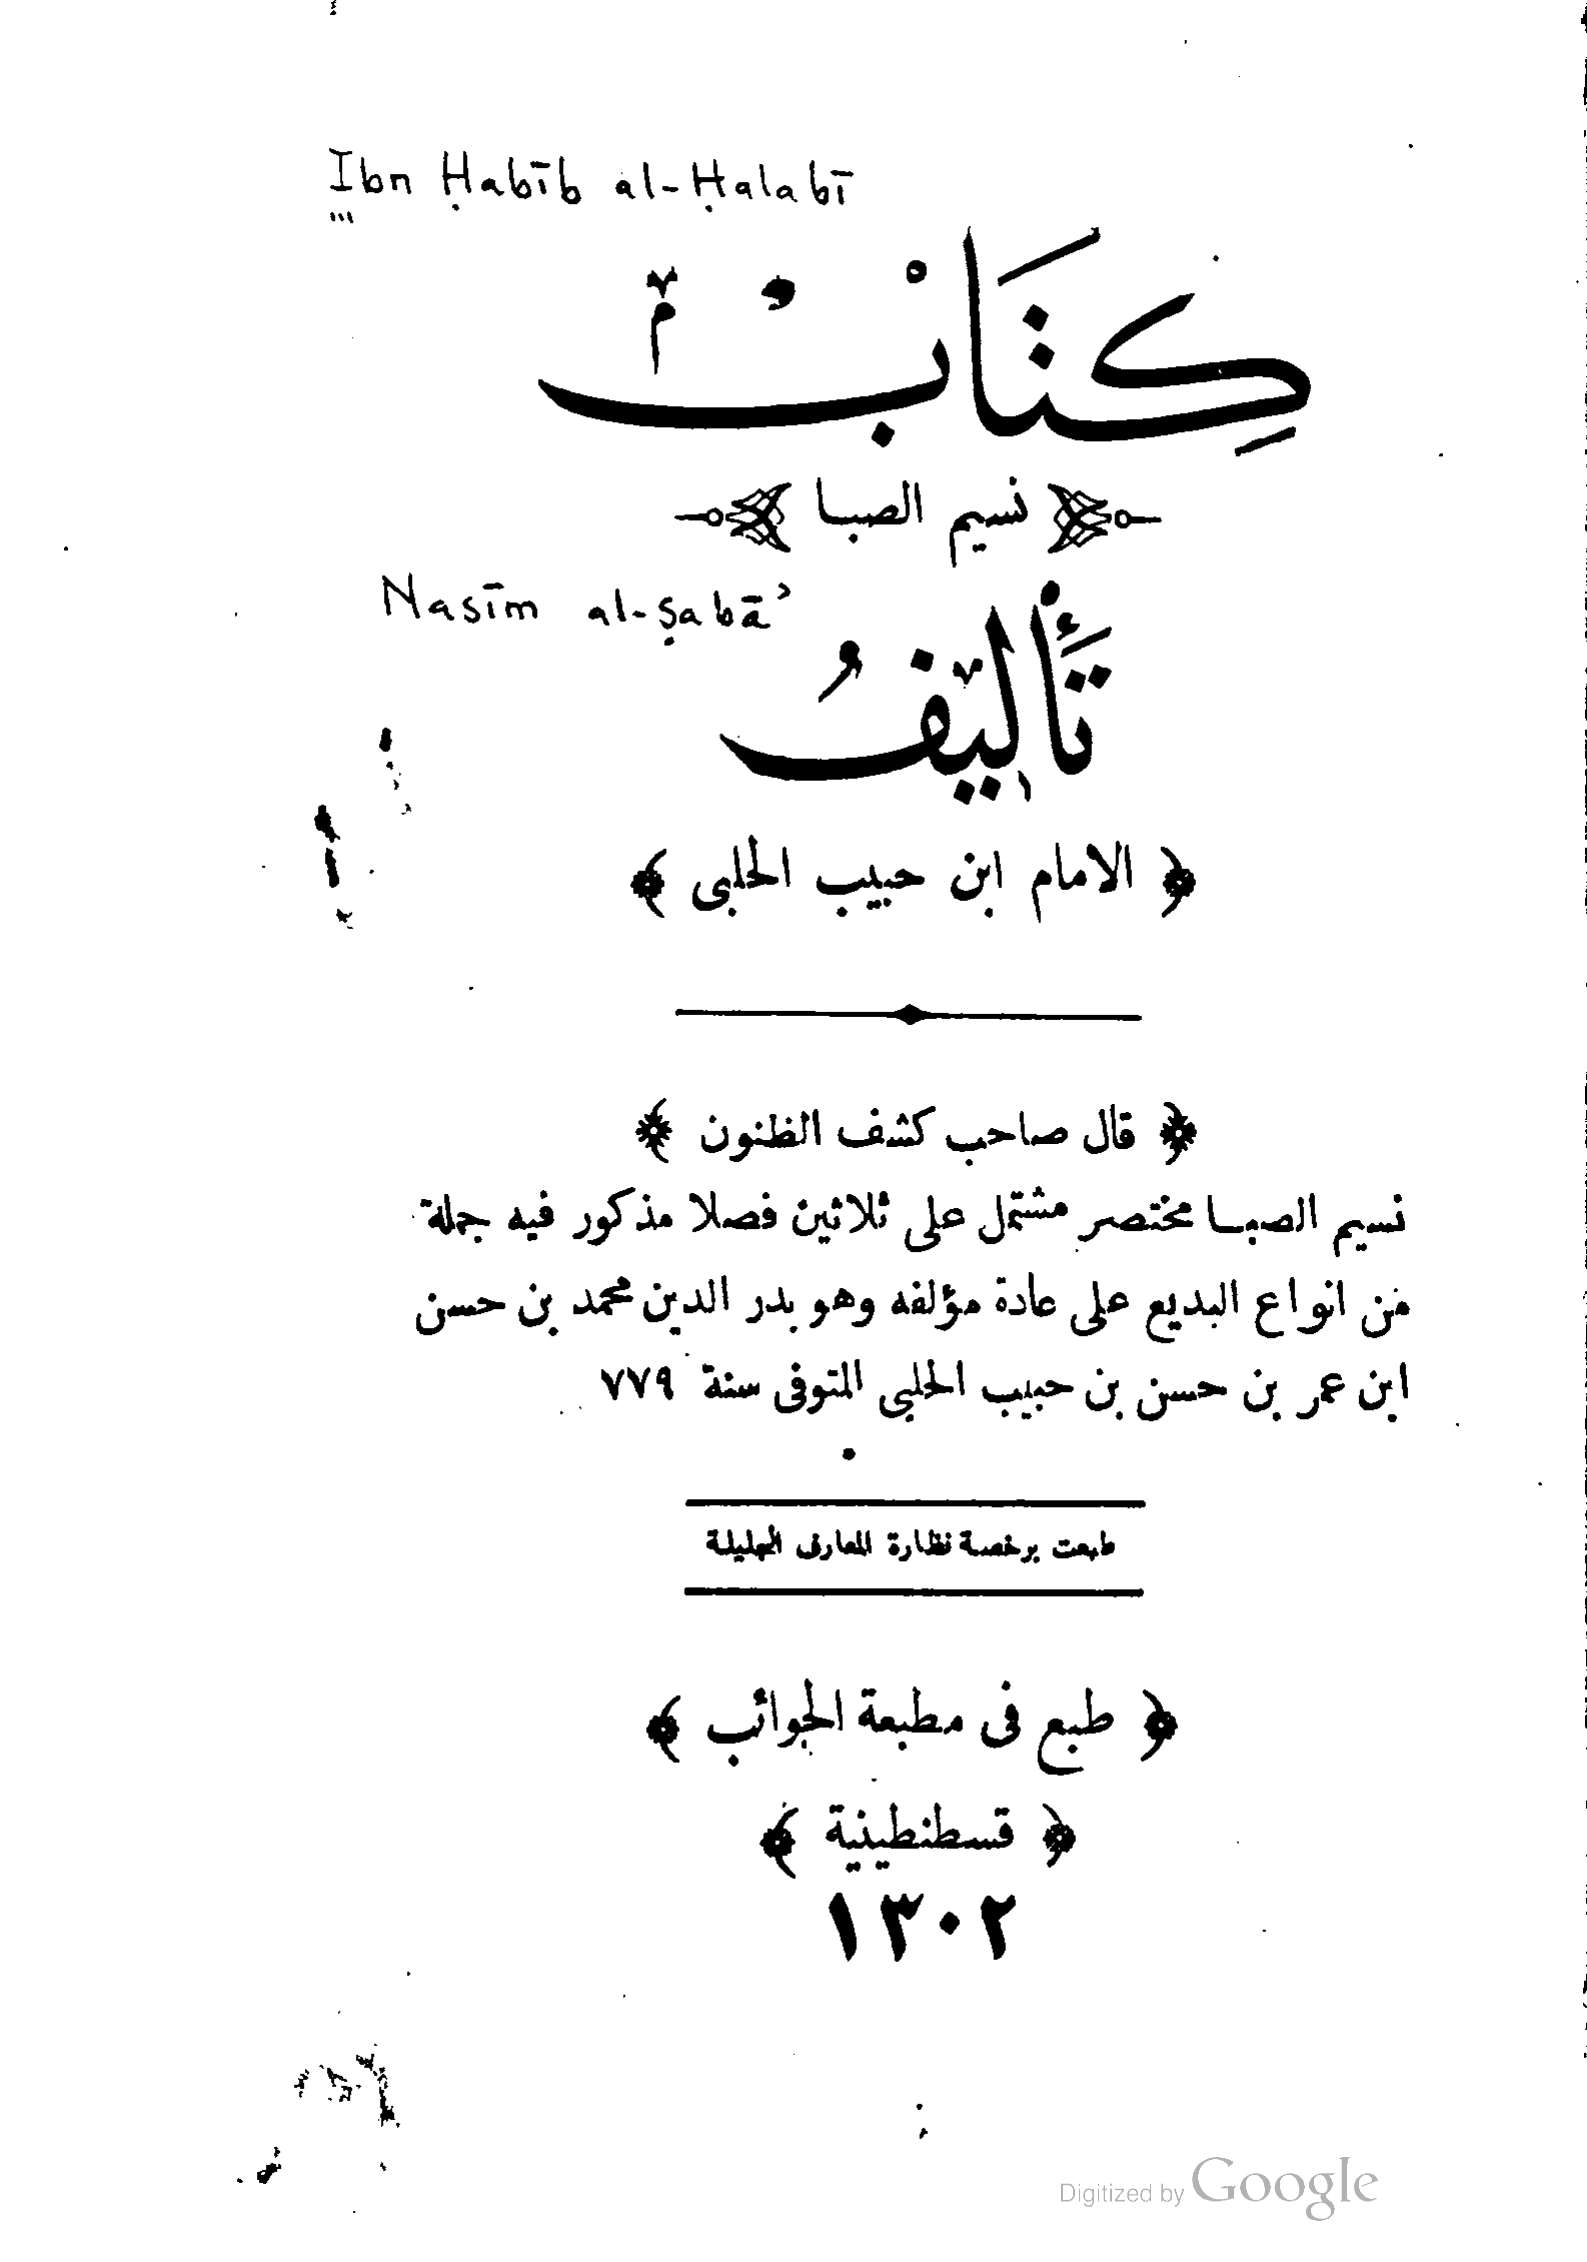 Ibn Ḥabīb al-Ḥalabī
كِتَابْ
نسيم الصبا
Nasīm al-ṣabāʾ
تَأْلِيفُ
﴿ الامام ابن حبيب الحلبى ﴾
﴿ قال صاحب كشف الظنون ﴾
نسيم الصبا مختصر مشتمل على ثلاثين فصلا مذكور فيه جملة
من انواع البديع على عادة مؤلفه وهو بدر الدين محمد بن حسن
ابن عمر بن حسن بن حبيب الحلبى المتوفى سنة ٧٧٩
طبعت برخصة نظارة المعارف الجليلة
﴿ طبع فى مطبعة الجوائب ﴾
﴿ قسطنطينية ﴾
١٣٠٢
Digitized by Google